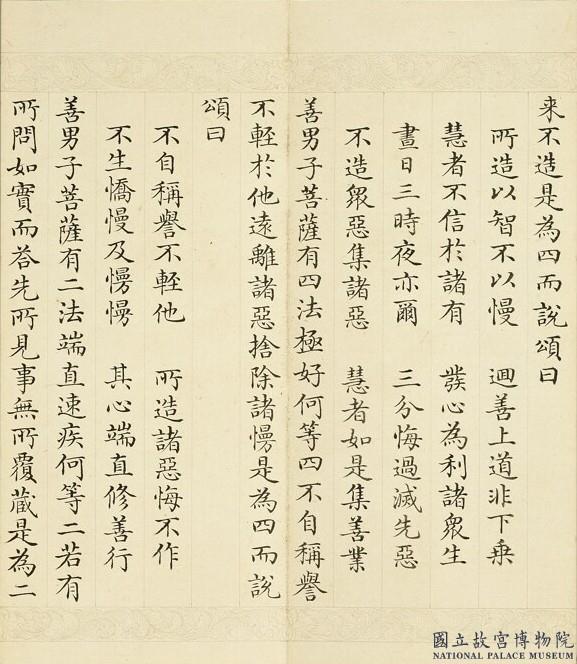 来不造是為四而說頌曰
所造以智不以慢　迴善上道非下乗
慧者不信於諸有　發心為利諸眾生
晝日三時夜亦爾　三分悔過滅先惡
不造眾惡集諸惡　慧者如是集善業
善男子菩薩有四法極好何等四不自稱譽
不輕於他遠離諸惡捨除諸慢是為四而說
頌曰
不自稱譽不輕他　所造諸惡悔不作
不生憍慢及慢慢　其心端直修善行
善男子菩薩有二法端直速疾何等二若有
所問如實而答先所見事無所覆藏是為二
國立故宮博物院
NATIONAL PALACE MUSEUM